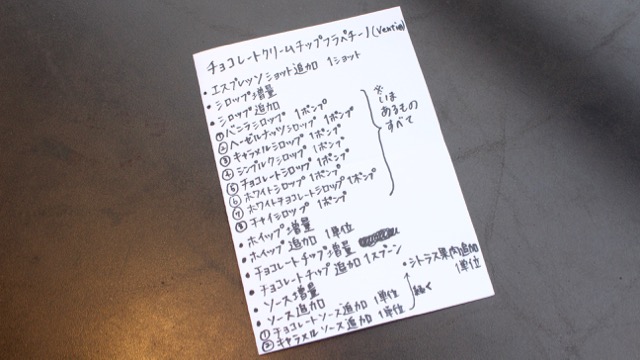 チョコレートクリームチップフラペチーノ(Venti)
・エスプレッソショット追加 1ショット
・シロップ増量
・シロップ追加
①バニラシロップ 1ポンプ
②ヘーゼルナッツシロップ 1ポンプ
③キャラメルシロップ 1ポンプ
④シンプルシロップ 1ポンプ
⑤チョコレートシロップ 1ポンプ
⑥ホワイトシロップ 1ポンプ
⑦ホワイトチョコレートシロップ 1ポンプ
⑧チャイシロップ 1ポンプ
※いま
あるもの
すべて
・ホイップ増量
・ホイップ追加 1単位
・チョコレートチップ増量
・チョコレートチップ追加 1スプーン
・ソース増量
・ソース追加
①チョコレートソース追加 1単位
②キャラメルソース追加 1単位
続く
・シトラス果肉追加
1単位